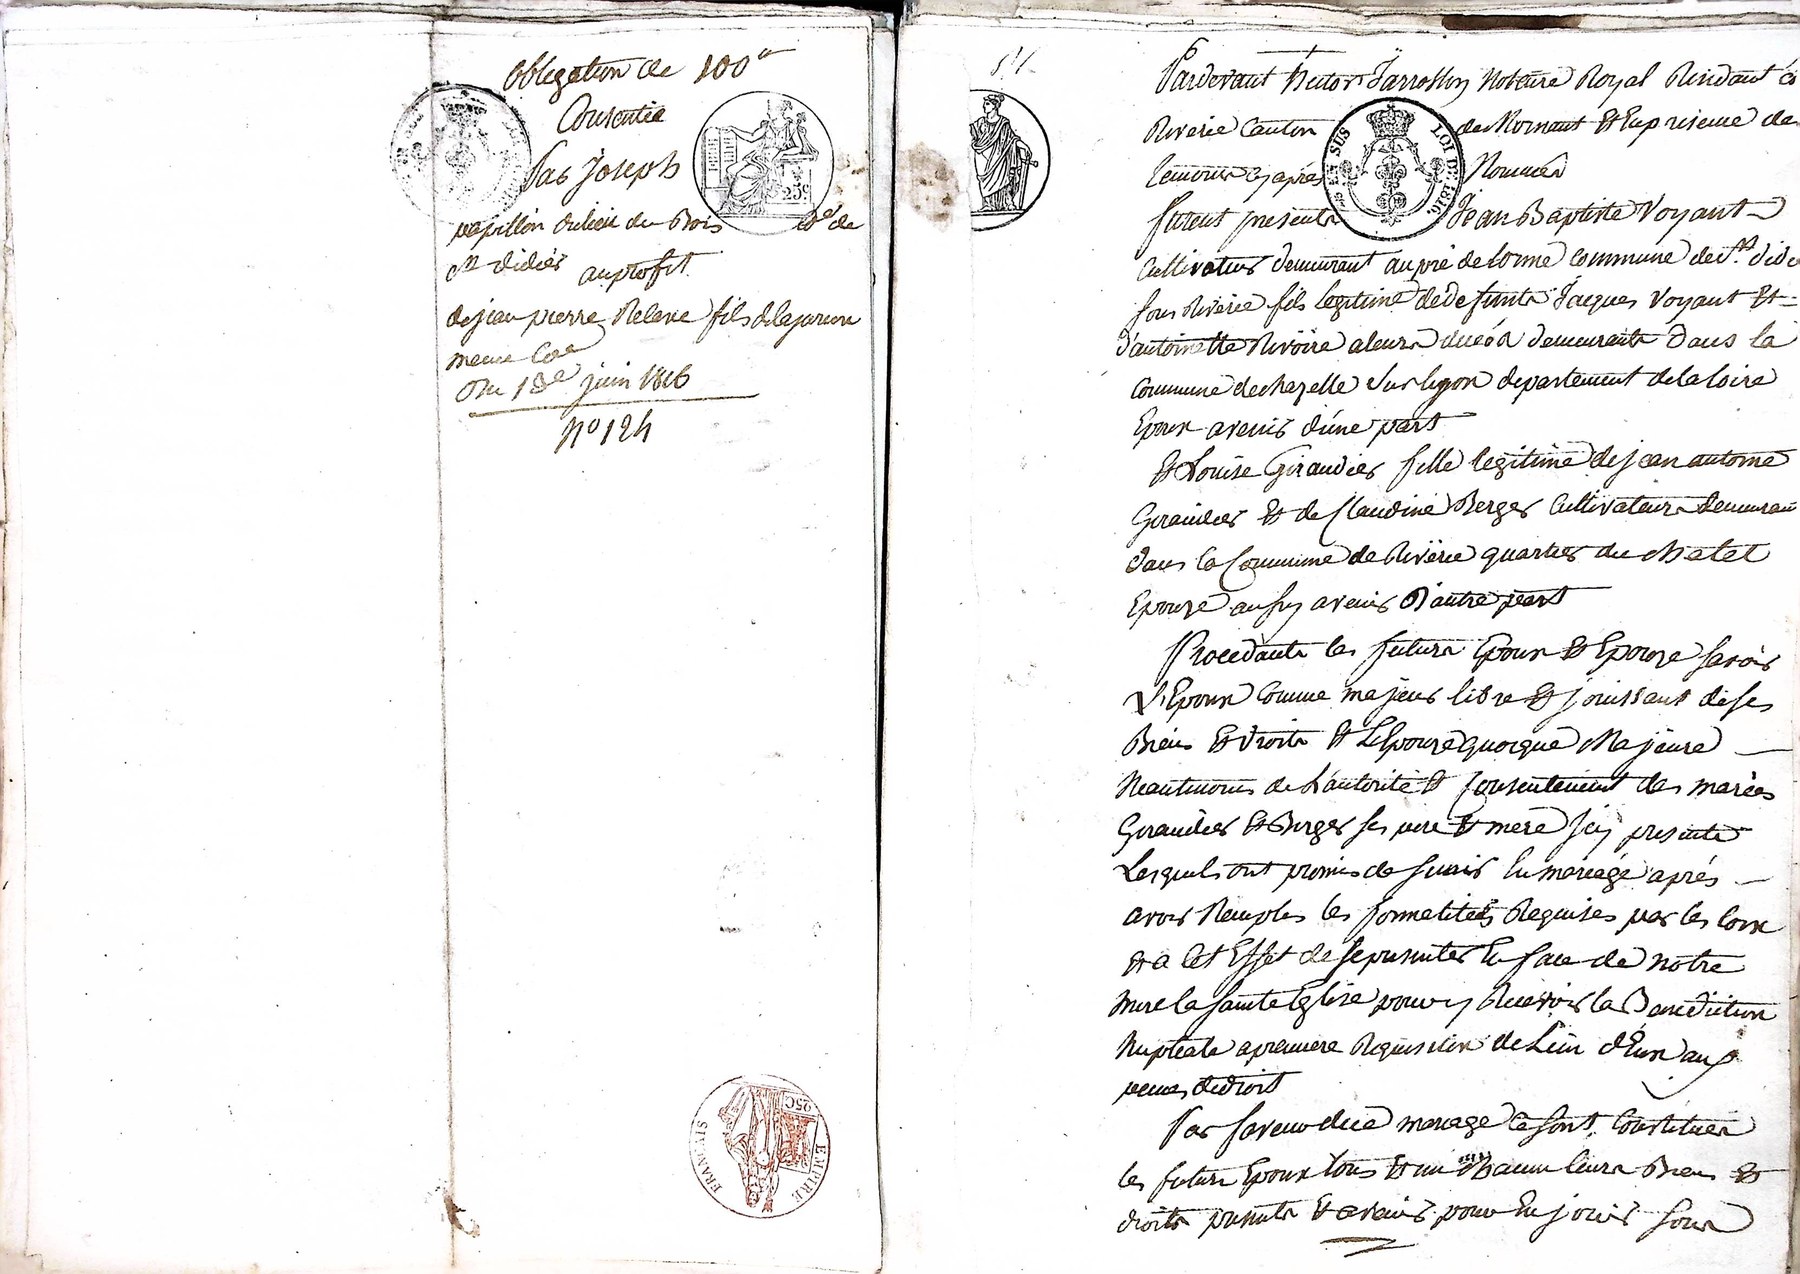 Obligation de 100#
Consentie
Par Joseph
papillon du lieu du Bois Co^e de
S^t didier au profit
de jean pierre Relave fils de la
meme Co^e
Du 18^e juin 1816
N° 124
25c
EMPIRE FRANÇAIS
25C
Pardevant hector Jarrosson Notaire Royal Residant à
Riverie Canton de Mornant Et En presence des
temoins cy après Nommés
furent presents Jean Baptiste Voyant
LOI DE 1816
EN SUS
Cultivateur demeurant au pré de lorme commune de S^t didier
sous Riverie fils legitime de defunts Jacques Voyant Et
d'antoinette Rivoire a leurs décés demeurants dans la
Commune de chazelle Sur lyon departement de la loire
Epoux avenir d'une part
Et Louise Giraudier fille legitime de jean antoine
Giraudier Et de Claudine Berger Cultivateurs demeurant
dans la Commune de Riverie quartier du chatel
Epouze aussy avenir D'autre part
Procedants les futurs Epoux Et Epouze savoir
L'Epoux Comme majeur libre Et jouissant de ses
Biens Et droits Et L'Epouze quoique Majeure
Neantmoins de L'autorité Et Consentement des mariés
Giraudier Et Berger ses pere Et mere Icy presents
Lesquels ont promis de s'unir En mariage après
avoir Remplis les formalités Requises par les loix
Et a Cet Effet de se presenter En face de notre
mere la sainte Eglise pour y Recevoir la Benediction
Nuptiale a premiere Requisition de L'un d'Eux aux
peines de droit
Par faveur du mariage se sont Constitués
les futurs Epoux tous Et un Chacun leurs Biens Et
droits presents Et avenir pour En jouir sous